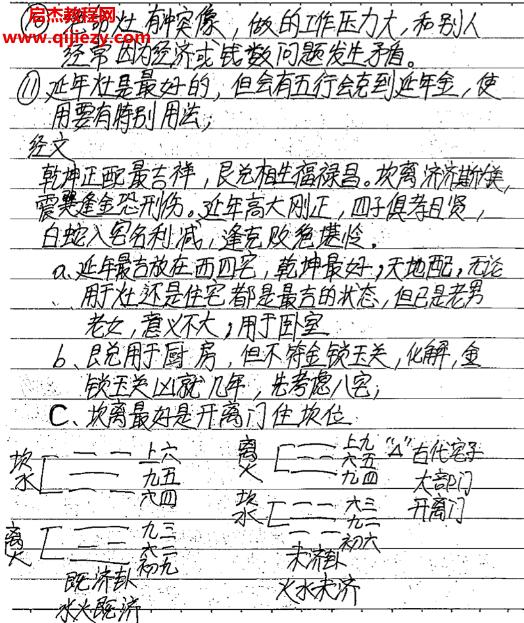 启杰易
www.qijiezy.com
灶有冲突像，做的工作压力大，和别人
经常因为经济或钱数问题发生矛盾。
⑪延年灶是最好的，但会有五行会克到延年金，使
用要有特别用法；
经文
乾坤正配最吉祥，艮兑相生福禄昌。坎离济济斯美，
震巽逢金恐刑伤。延年高大刚正，四子俱孝且贤，
白蛇入宅名利减，逢克败绝堪怜。
a.延年最吉放在西四宅，乾坤最好，天地配，无论
用于灶还是住宅都是最吉的状态，但已是老男
老女，意义不大，用于卧室
b、艮兑用于厨房，但不符金锁玉关，化解，金
锁玉关凶就几年，先考虑八宅；
C、坎离最好是开离门住坎位
坎水 上六 九五 六四
离火 九三 六二 初九
既济卦
水火既济
离火 上九 六五 九四
坎水 六三 九二 初六
未济卦
火水未济
"△"古代宅子
大部门
开离门